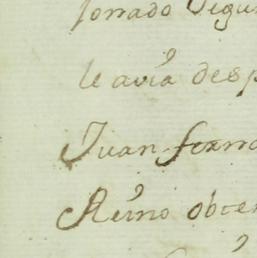 forrado Segu
le avía desp
Juan fern
Reino obte